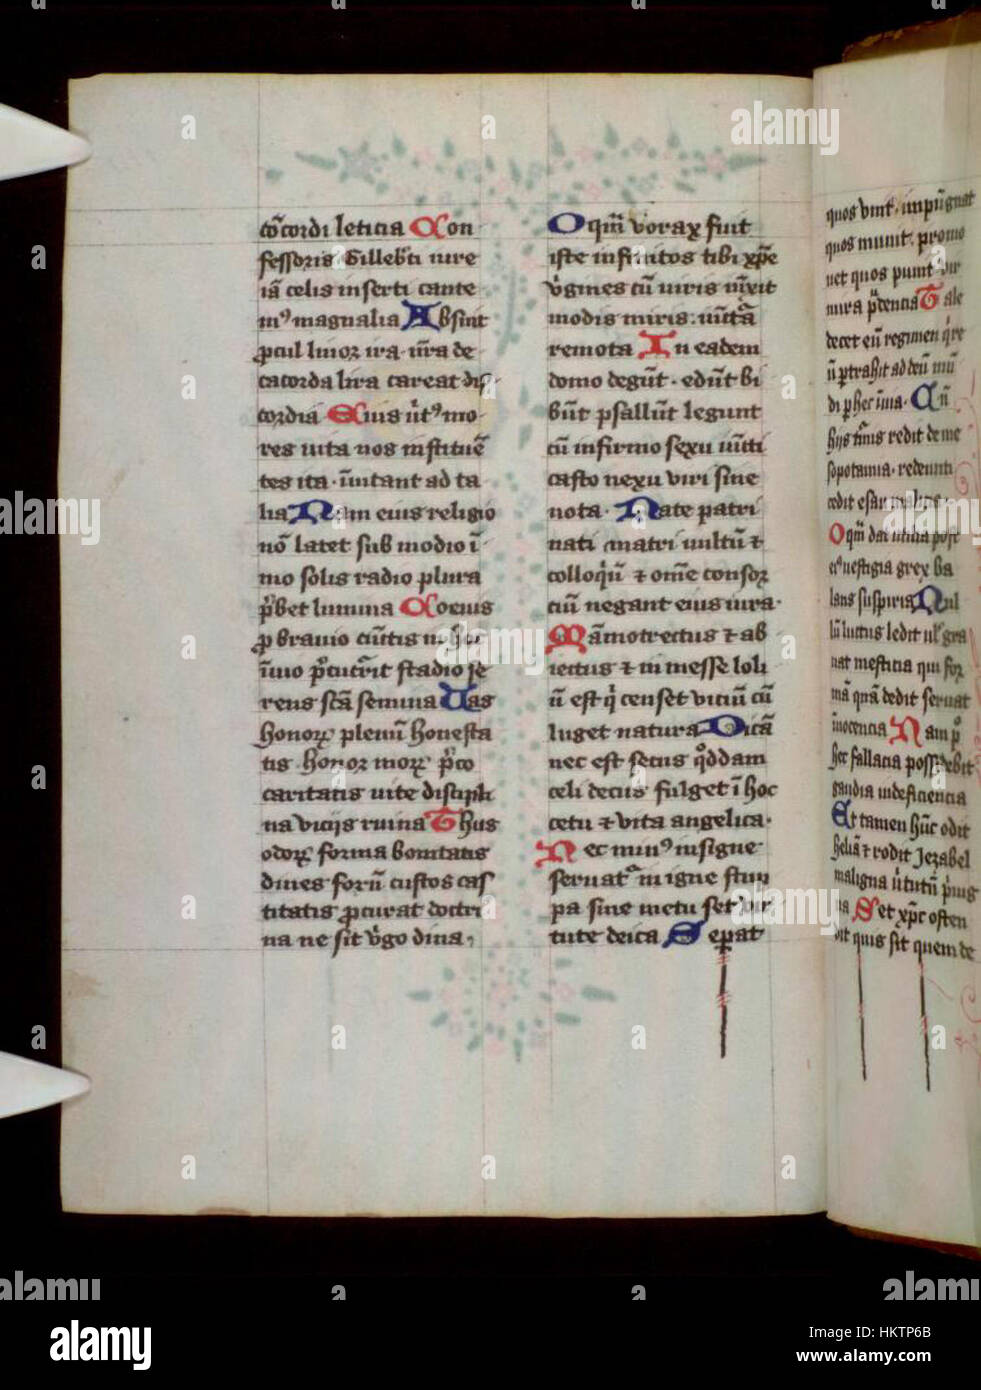 cōcordi leticia Con
fessoris Gilleb'ti iure
iā celis inserti cante
mꝰ magnalia Absint
ꝓcul liuor ira
cacorda lira careat dis
cordia Eius
res uita nos instituē
tes ita inuitant ad ta
lia Nam eius religio
nō latet sub modio ī
mo solis radio plura
p̄bet lumina Cocius
ꝓ brauio
stadio se
rens scā semina Uas
honoꝝ plenū honesta
tis honor moꝝ p̄co
caritatis uite discipli
na vicijs ruina Thus
odoꝝ forma bonitatis
diues forū custos cas
titatis ꝓcurat doctri
na ne sit v̄go dina
O qm̄ vorax fuit
iste infinitos tibi xp̄e
v̄gines cū viris
modis miris
remota In eadem
domo degūt · edūt bi
būt psallūt legunt
cū infirmo sexu
casto nexu viri sine
nota · Nate patri
nati matri uultū ⁊
colloqū ⁊ om̄e consor
ciū negant eius iura
Māmotrectus ⁊ ab
iectus ⁊ in messe loli
ū est censet viciū cū
luget natura Dicā
nec est secus qͦddam
celi decus fulget ī hoc
cetu ⁊ vita angelica·
Nec minꝰ insigne
seruatᷓ in igne stup
pa sine metu set vir
tute deica Seꝑat
quos vīnt · inpūgnat
quos munit · promo
uet quos punit vir
mira
decet eū regimen
ꝑtrahit ad deū mū
Cū
redit de me
sopotamia · redeunti
cedit esau
O qm̄ dat utilia post
uestigia grex ba
lans suspiria Nul
lū luctus ledit
nat mesticia qui for
mā quā dedit seruat
inocencia Nam
hec fallacia
gaudia indeficiencia
Et tamen hūc odit
heliā ⁊ rodit Jezabel
maligna
na Set xp̄c osten
dit quis sit quem de
a
alamy
alamy
Image ID: HKTP6B
www.alamy.com